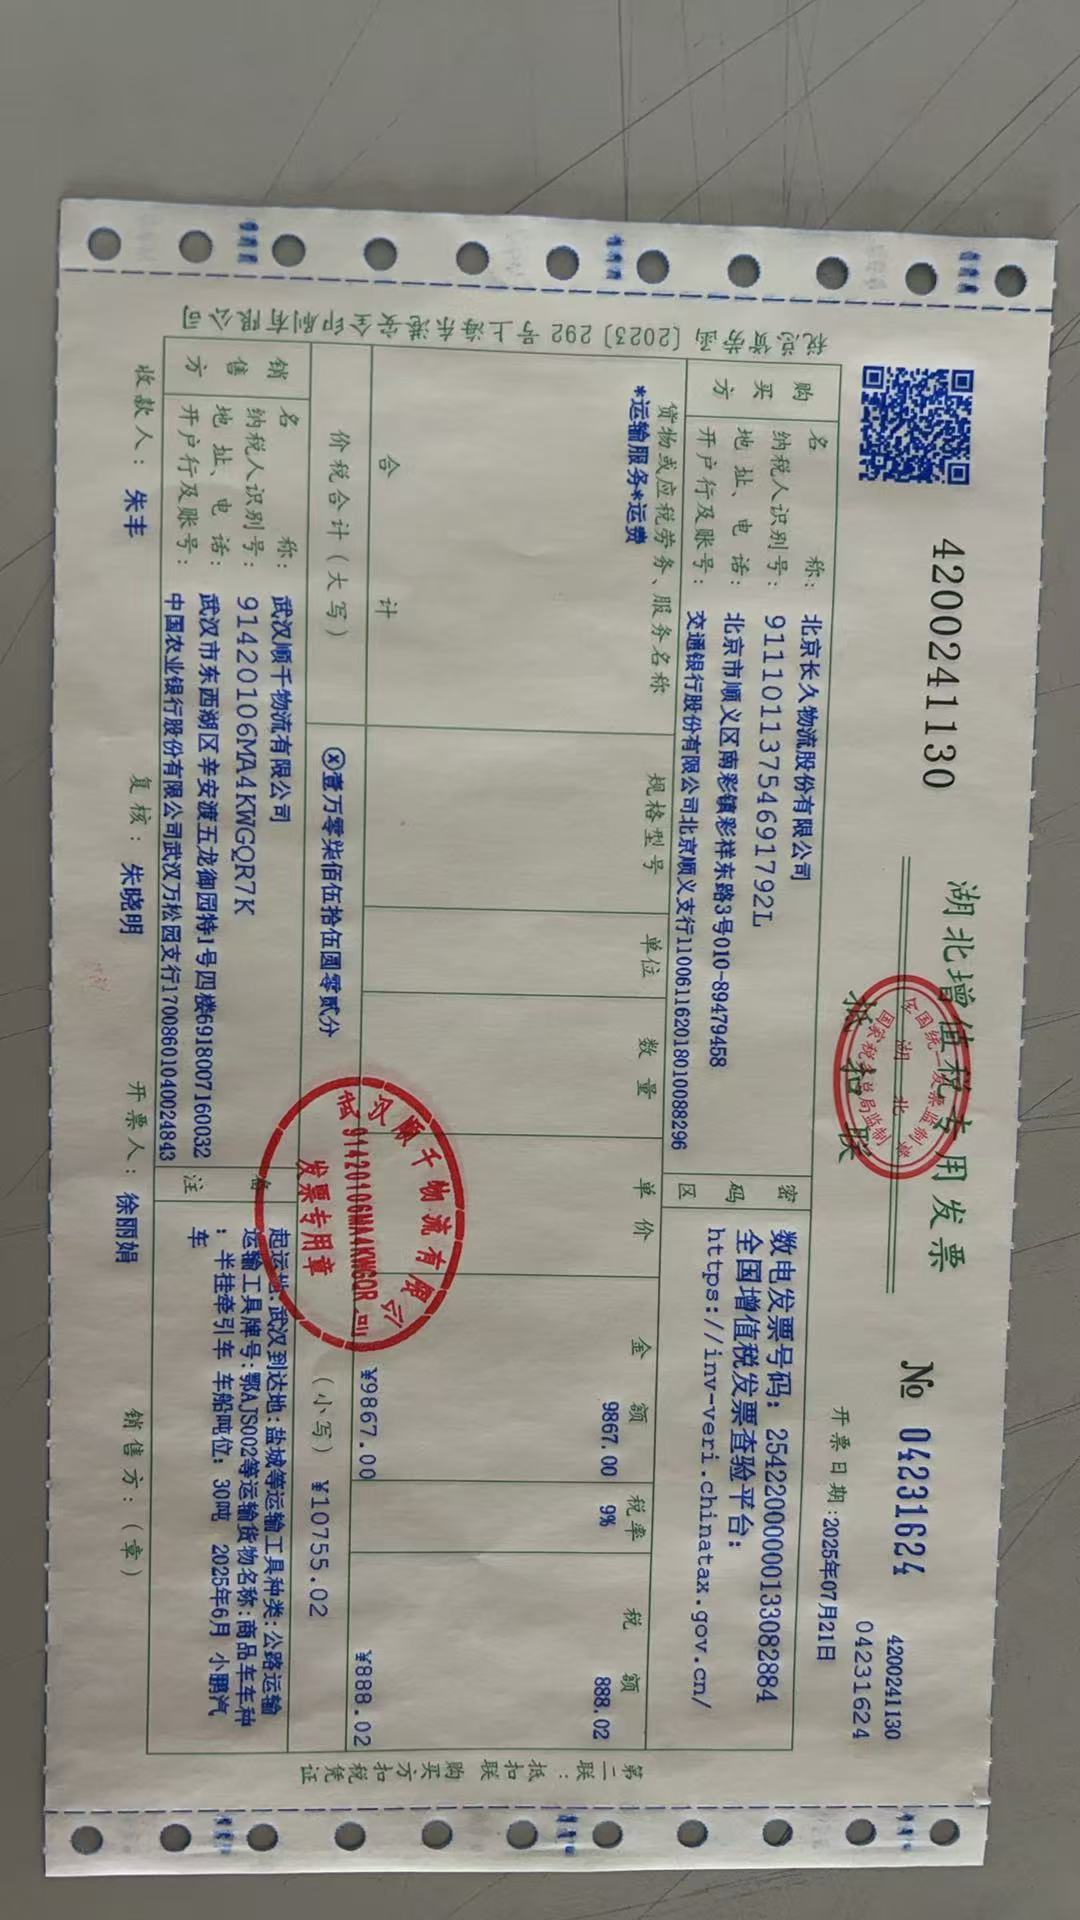 4200241130
湖北增值税专用发票
抵扣联
全国统一发票监制章
湖北
国家税务总局监制
№ 04231624
4200241130
04231624
开票日期:2025年07月21日
税总货劳函〔2023〕292号上海东港安全印刷有限公司
购买方
名称:北京长久物流股份有限公司
纳税人识别号:91110113754691792L
地址、电话:北京市顺义区南彩镇彩祥东路3号010-89479458
开户行及账号:交通银行股份有限公司北京顺义支行110061162018010088296
密码区
数电发票号码:25422000000133082884
全国增值税发票查验平台:
https://inv-veri.chinatax.gov.cn/
货物或应税劳务、服务名称 规格型号 单位 数量 单价 金额 税率 税额
*运输服务*运费 9867.00 9% 888.02
合计 ¥9867.00 ¥888.02
价税合计(大写) ⓧ壹万零柒佰伍拾伍圆零贰分 (小写) ¥10755.02
销售方
名称:武汉顺千物流有限公司
纳税人识别号:91420106MA4KWGQR7K
地址、电话:武汉市东西湖区辛安渡五龙御园特1号四楼6918007160032
开户行及账号:中国农业银行股份有限公司武汉万松园支行17008601040024843
备注
起运地:武汉到达地:盐城等运输工具种类:公路运输
运输工具牌号:鄂AJS002等运输货物名称:商品车车种
:半挂牵引车 车船吨位:30吨 2025年6月 小鹏汽
车
武汉顺千物流有限公司
91420106MA4KWGQR
发票专用章
收款人:朱丰 复核:朱晓明 开票人:徐丽娟 销售方:(章)
第二联:抵扣联 购买方扣税凭证